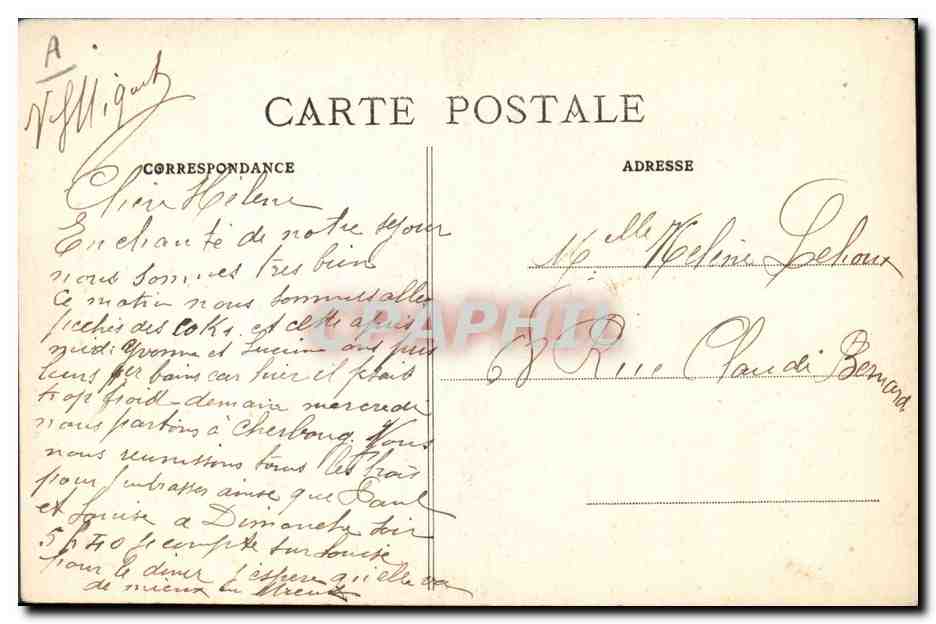 A
CARTE POSTALE
CORRESPONDANCE
ADRESSE
Chère Hélène
Enchanté de notre sejour
nous sommes tres bien
Ce matin nous sommes allés
pecher des coks. et cette apres
midi Yvonne et Lucienne ont pris
leurs 1er bains car hier il faisait
trop froid demain mercredi
nous partons à Cherboug. Nous
nous reunissons tous les trois
pour t'embrasser ainsi que Paul
et Louise a Dimanche soir
5h40 je compte sur Louise
pour le diner j'espere qu'elle va
de mieux en mieux
Melle Helène Lehoux
68 Rue Claude Bernard
CPAPHIL